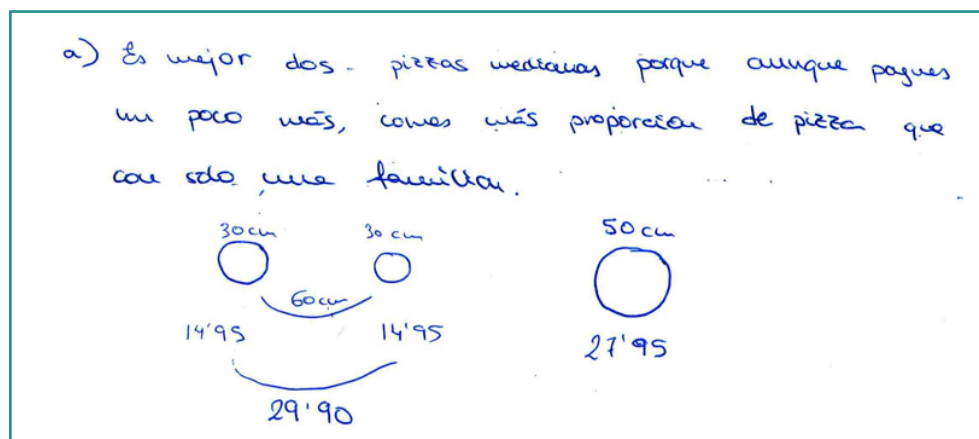 a) Es mejor dos - pizzas medianas porque aunque pagues
un poco más, comes más proporcion de pizza que
con solo una familiar.
30cm 30 cm 50 cm
60cm
14'95 14'95 27'95
29'90